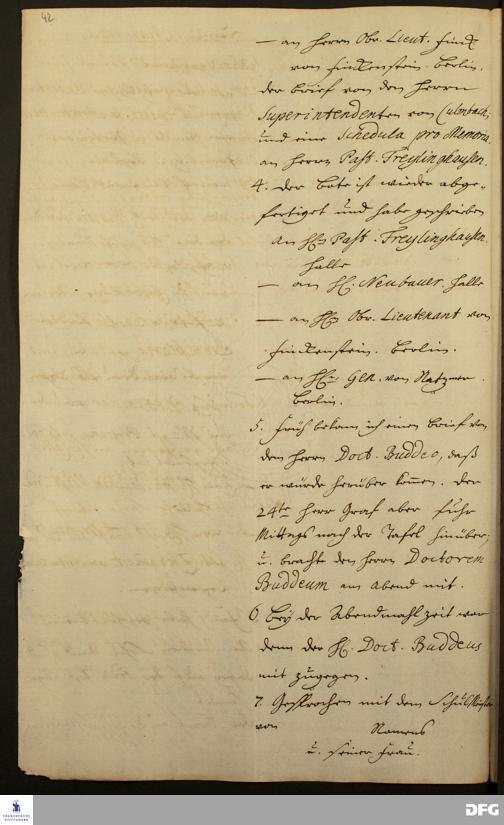 42
— an Herrn Obr. Lieut. Finck
von Finckenstein. Berlin.
der brief von den Herrn
Superintendenten von Culmbach;
und eine Schedula pro Memoria
an Herrn Past. Freylinghausen.
4. Der bote ist wieder abge-
fertiget und habe geschrieben
An HEn Past. Freylinghausen.
Halle
— an HE. Neubauer. Halle
— an HEn Obr. Lieutenant von
Finckenstein. Berlin.
— an HEn Gen. von Natzmer.
Berlin.
5. Früh bekam ich einen brief von
dem Herrn Doct. Buddeo, daß
er würde herüber kommen. Der
24te Herr Graf aber fuhr
Mittags nach der Tafel hinüber,
u. brachte den Herrn Doctorem
Buddeum am Abend mit.
6 Bey der Abendmahlzeit war
denn der HE. Doct. Buddeus
mit zugegen.
7. Gesprochen mit dem Schulmeister
von Namens
u. seiner Frau.
FRANCKESCHE
STIFTUNGEN
DFG